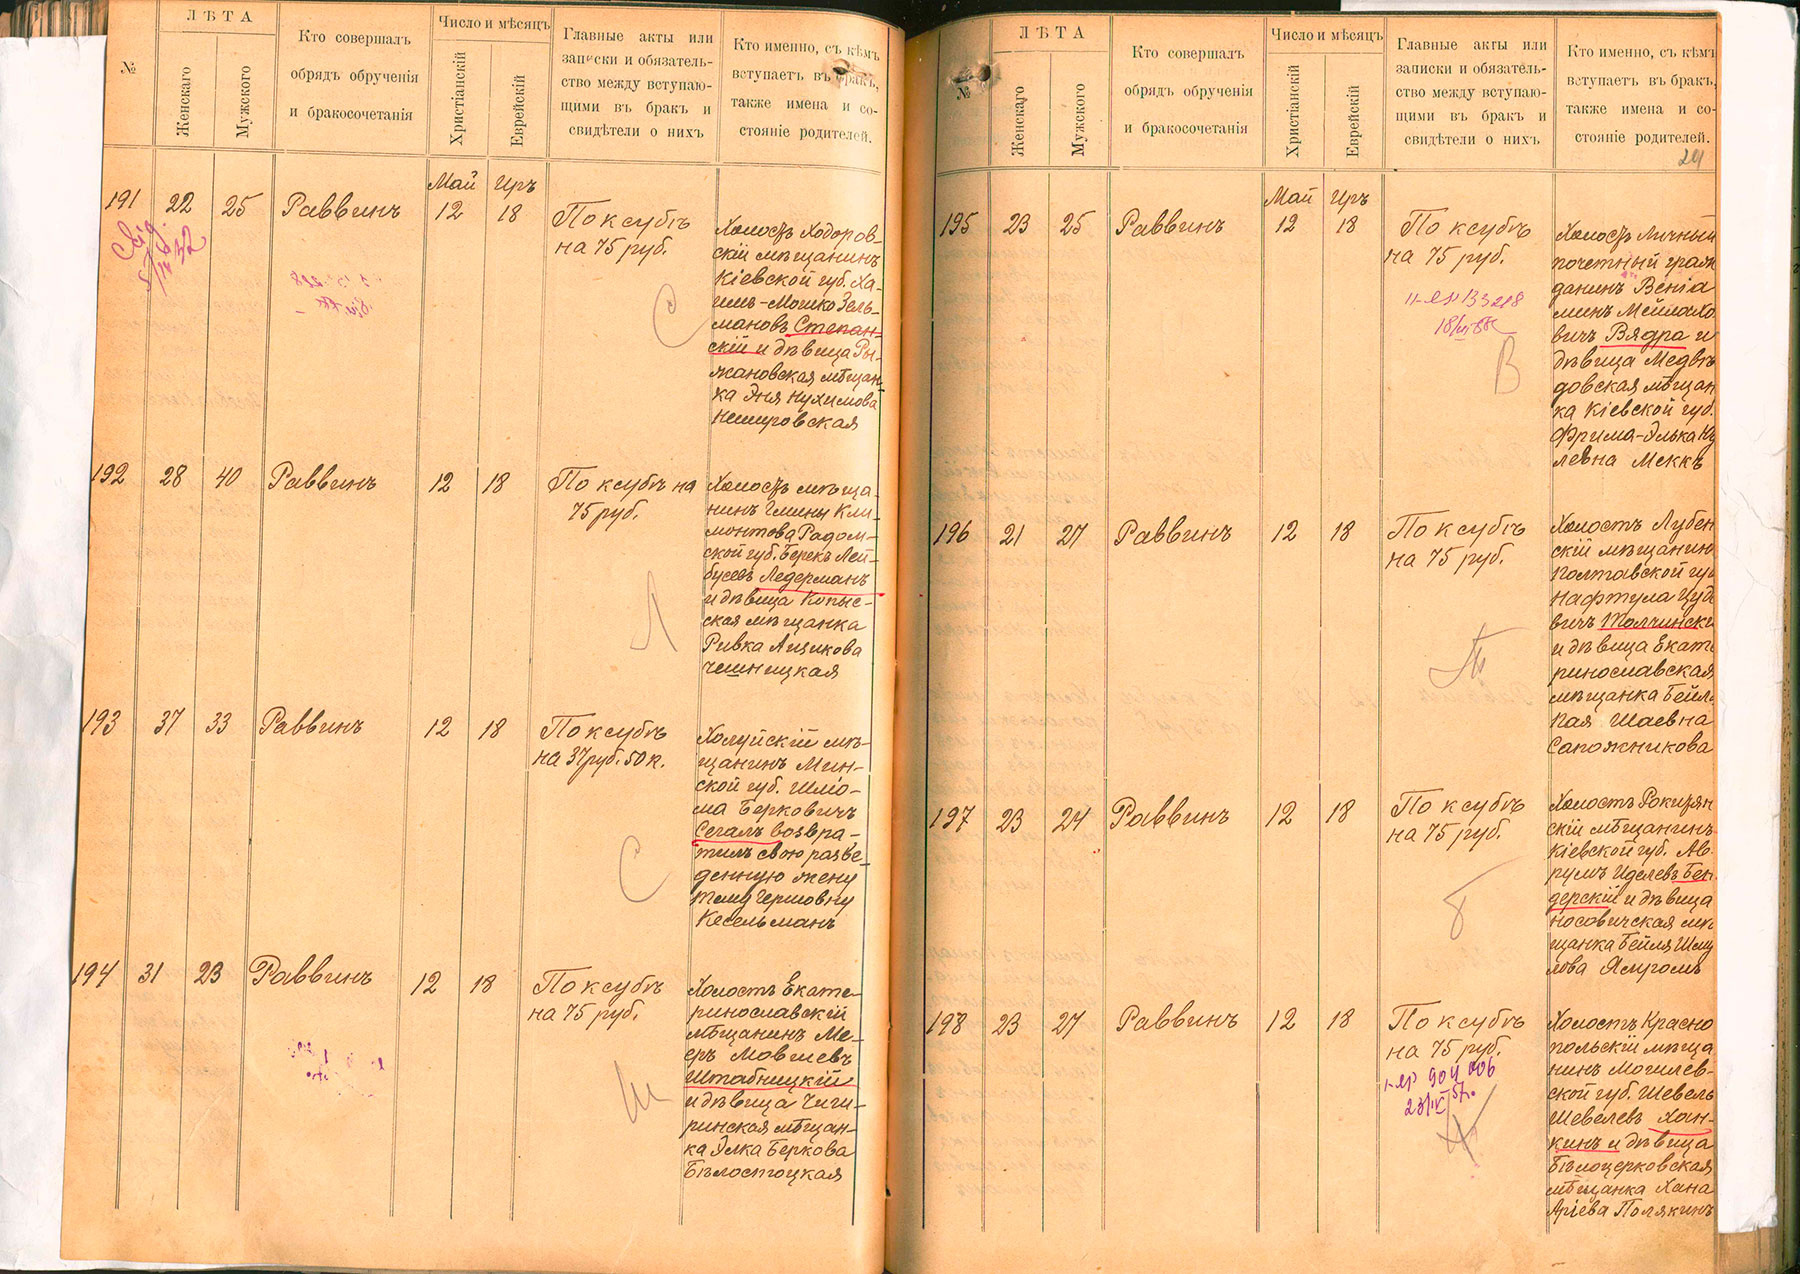 №
ЛѢТА
Женскаго
Мужского
Кто совершалъ
обрядъ обрученія
и бракосочетанія
Число и мѣсяцъ
Христіанскій
Еврейскій
Главные акты или
записки и обязатель-
ство между вступаю-
щими въ бракъ и
свидѣтели о нихъ
Кто именно, съ кѣмъ
вступаетъ въ бракъ,
также имена и со-
стояніе родителей.
Май Иръ
191 22 25 Раввинъ 12 18
По ксубѣ
на 75 руб.
Холостъ Ходоров-
скій мѣщанинъ
Кіевской губ. Ха-
имъ-Мошко Зель-
мановъ Степан-
скій и дѣвица Ры-
жановская мѣщан-
ка Эня Нухимова
Немировская
С
192 28 40 Раввинъ 12 18
По ксубѣ на
75 руб.
Холостъ мѣща-
нинъ Гмины Кли-
монтова Радом-
ской губ. Берекъ Лей-
бусевъ Ледерманъ
и дѣвица Копыс-
ская мѣщанка
Ривка Ицикова
Чешницкая
Л
193 37 33 Раввинъ 12 18
По ксубѣ
на 37 руб. 50 к.
Холуйскій мѣ-
щанинъ Мин-
ской губ. Шлю-
ма Берковичъ
Сегалъ возвра-
тилъ свою разве-
денную жену
Тему Гершовну
Кесельманъ
С
194 31 23 Раввинъ 12 18
По ксубѣ
на 75 руб.
Холостъ Екате-
ринославскій
мѣщанинъ Ме-
еръ Мовшевъ
Штабницкій
и дѣвица Чиги-
ринская мѣщан-
ка Элка Беркова
Бѣлостоцкая
Ш
№
ЛѢТА
Женскаго
Мужского
Кто совершалъ
обрядъ обрученія
и бракосочетанія
Число и мѣсяцъ
Христіанскій
Еврейскій
Главные акты или
записки и обязатель-
ство между вступаю-
щими въ бракъ и
свидѣтели о нихъ
Кто именно, съ кѣмъ
вступаетъ въ бракъ,
также имена и со-
стояніе родителей.
Май Иръ
195 23 25 Раввинъ 12 18
По ксубѣ
на 75 руб.
Холостъ Личный
почетный граж
данинъ Веніа
минъ Мейлахо
вичъ Вядра и
дѣвица Медвѣ
довская мѣщан
ка Кіевской губ.
Фрима-Элька Ку
левна Меккъ
В
196 21 27 Раввинъ 12 18
По ксубѣ
на 75 руб.
Холостъ Лубен
скій мѣщанин
Полтавской гу
Нафтула Цуд
вичъ Толчински
и дѣвица Екат
ринославская
мѣщанка Бейл
Кая Шаевна
Сапожникова
Т
197 23 24 Раввинъ 12 18
По ксубѣ
на 75 руб.
Холостъ Рокитян
скій мѣщанинъ
Кіевской губ. Ав
румъ Иделевъ Бен
дерскій и дѣвица
Носовичская мѣ
щанка Бейля Шму
лова Ямполь
Б
198 23 27 Раввинъ 12 18
По ксубѣ
на 75 руб.
904 006
Холостъ Красно
польскій мѣща
нинъ Могилев-
ской губ. Шевель
Шевелевъ Хан-
кинъ и дѣвица
Бѣлоцерковская
мѣщанка Хана
Аріева Полякинъ
Х